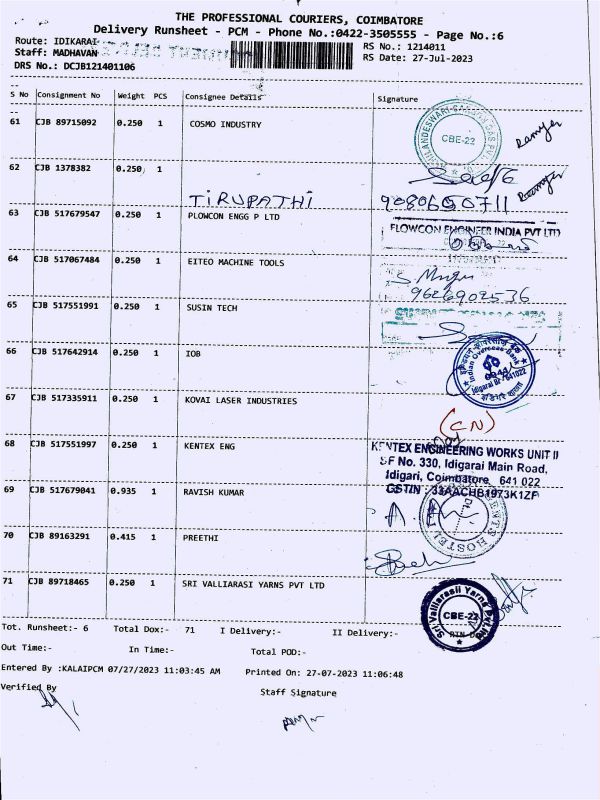 THE PROFESSIONAL COURIERS, COIMBATORE
Delivery Runsheet - PCM - Phone No.:0422-3505555 - Page No.:6
Route: IDIKARAI RS No.: 1214011
Staff: MADHAVAN RS Date: 27-Jul-2023
DRS No.: DCJB121401106
S No Consignment No Weight PCS Consignee Details Signature
61 CJB 89715092 0.250 1 COSMO INDUSTRY CBE-22
62 CJB 1378382 0.250 1
TIRUPATHI 9080690711
63 CJB 517679547 0.250 1 PLOWCON ENGG P LTD
FLOWCON ENGINEER INDIA PVT LTD
64 CJB 517067484 0.250 1 EITEO MACHINE TOOLS
9626902536
65 CJB 517551991 0.250 1 SUSIN TECH
66 CJB 517642914 0.250 1 IOB
Indian Overseas Bank
Idigarai Br - 641022
67 CJB 517335911 0.250 1 KOVAI LASER INDUSTRIES
(CN)
68 CJB 517551997 0.250 1 KENTEX ENG
KENTEX ENGINEERING WORKS UNIT II
SF No. 330, Idigarai Main Road,
Idigari, Coimbatore 641 022
GSTIN : 33AACHB1973K1ZP
69 CJB 517679041 0.935 1 RAVISH KUMAR
70 CJB 89163291 0.415 1 PREETHI
71 CJB 89718465 0.250 1 SRI VALLIARASI YARNS PVT LTD
Sri Valliarasii Yarns Pvt Ltd
CBE-22
Tot. Runsheet:- 6 Total Dox:- 71 I Delivery:- II Delivery:- RTN Dox
Out Time:- In Time:- Total POD:-
Entered By :KALAIPCM 07/27/2023 11:03:45 AM Printed On: 27-07-2023 11:06:48
Verified By Staff Signature